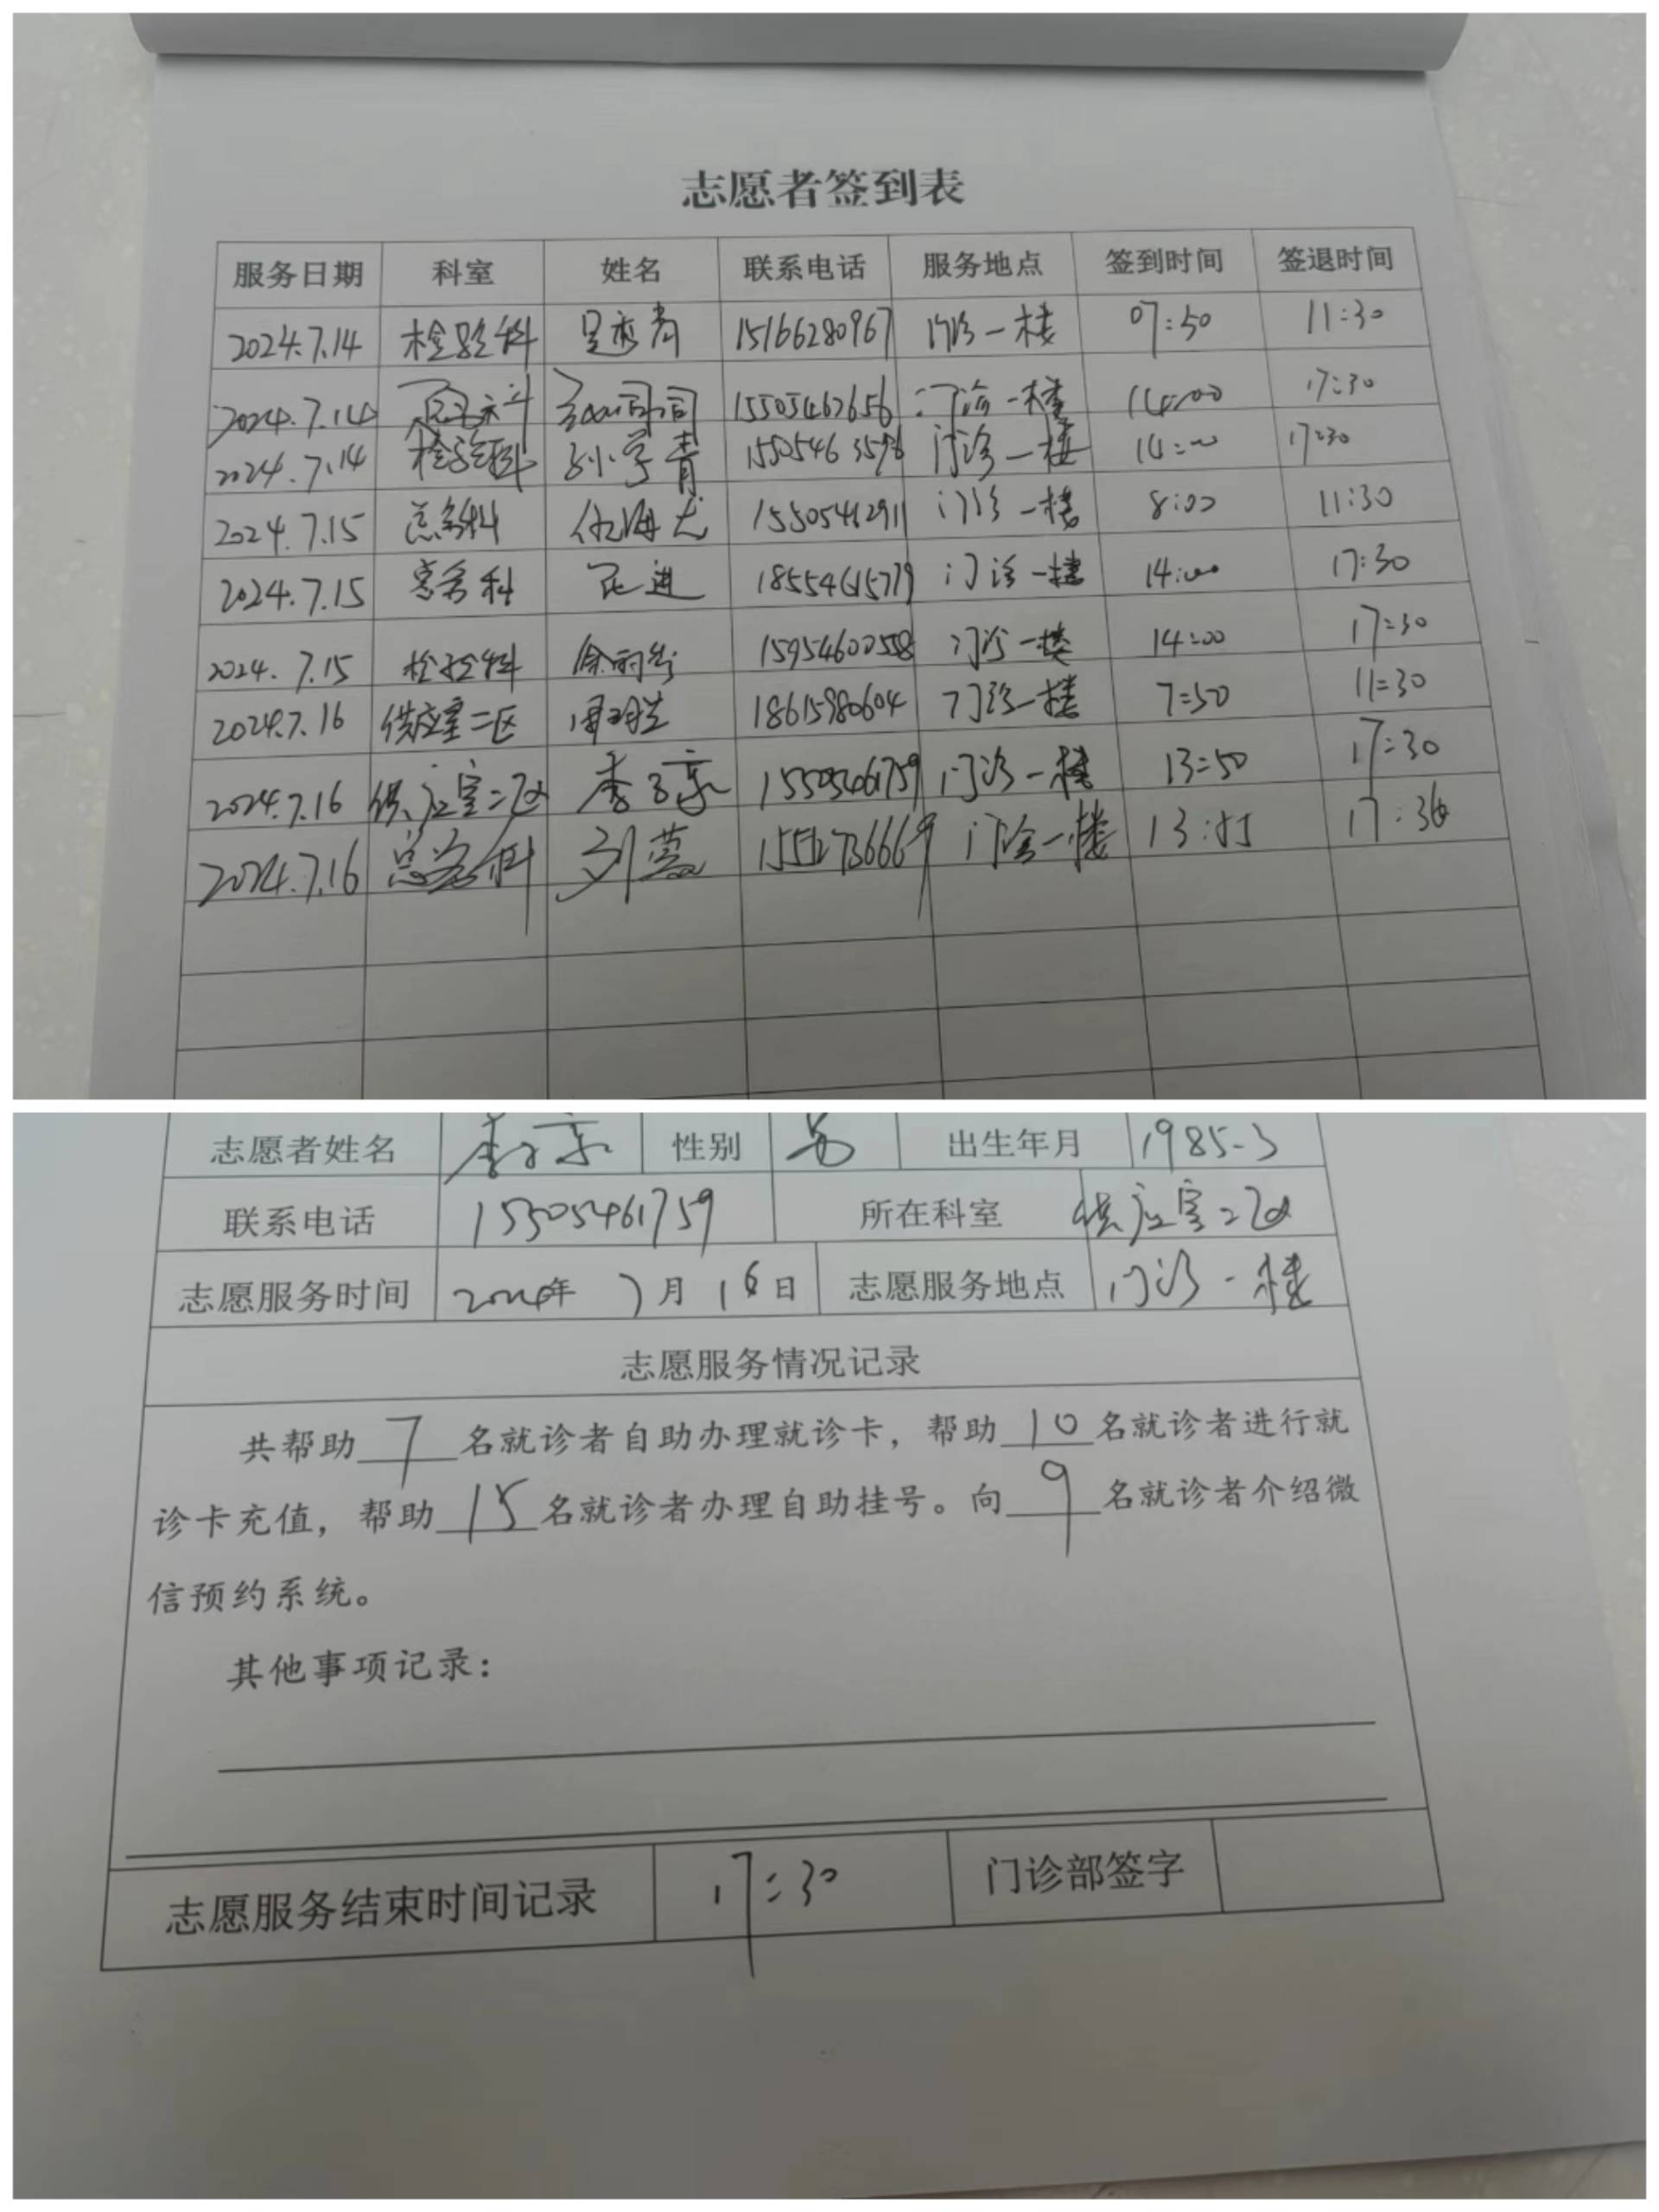 志愿者签到表
服务日期 科室 姓名 联系电话 服务地点 签到时间 签退时间
2024.7.14 检验科 15166280967 门诊一楼 07:50 11:30
2024.7.14 15505462656 门诊一楼 14:00 17:30
2024.7.14 检验科 孙学青 门诊一楼 14:00 17:30
2024.7.15 总务科 15505462911 门诊一楼 8:00 11:30
2024.7.15 总务科 门诊一楼 14:00 17:30
2024.7.15 检验科 徐雨 15954600558 门诊一楼 14:00 17:30
2024.7.16 供应室二区 18615980604 门诊一楼 7:50 11:30
2024.7.16 供应室二区 李子亭 15505461759 门诊一楼 13:50 17:30
2024.7.16 总务科 刘 门诊一楼 17:30
志愿者姓名 李子亭 性别 男 出生年月 1985-3
联系电话 15505461759 所在科室 供应室二区
志愿服务时间 2024年7月16日 志愿服务地点 门诊一楼
志愿服务情况记录
共帮助7名就诊者自助办理就诊卡，帮助10名就诊者进行就
诊卡充值，帮助15名就诊者办理自助挂号。向9名就诊者介绍微
信预约系统。
其他事项记录：
志愿服务结束时间记录 17:30 门诊部签字